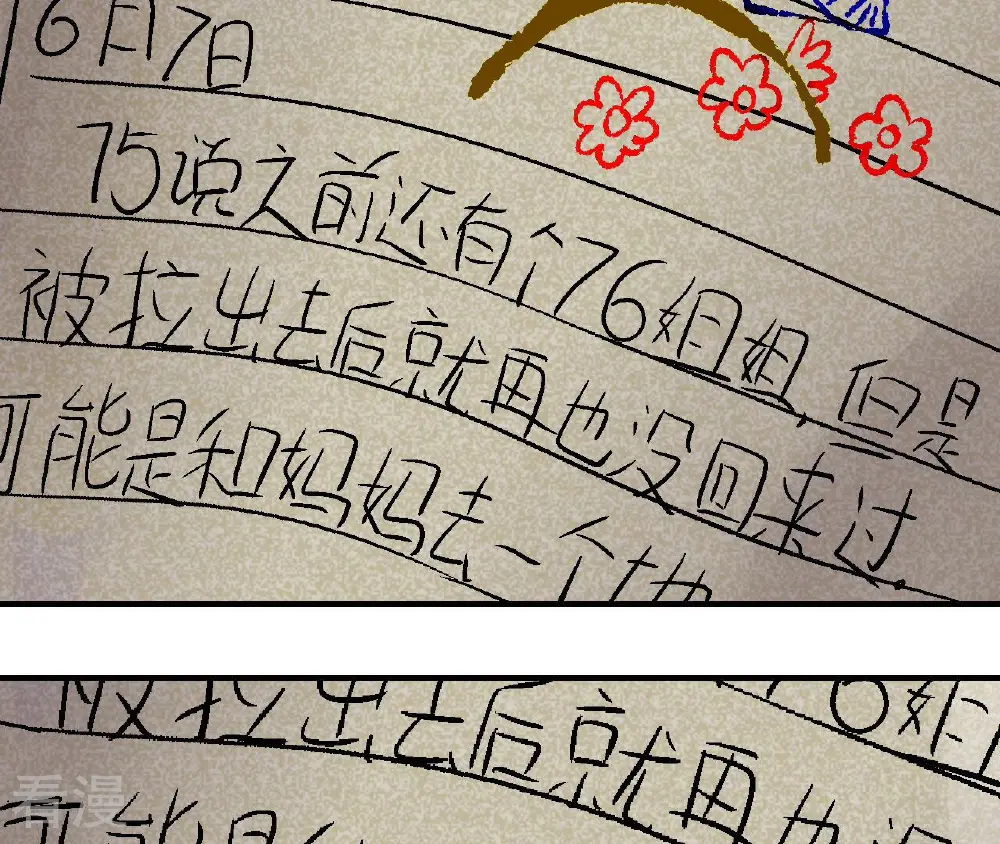 6月7日
75说之前还有个76姐姐,但是
被拉出去后就再也没回来过.
可能是和妈妈去一个地
76姐
被拉出去后就再也没
可能是
看漫